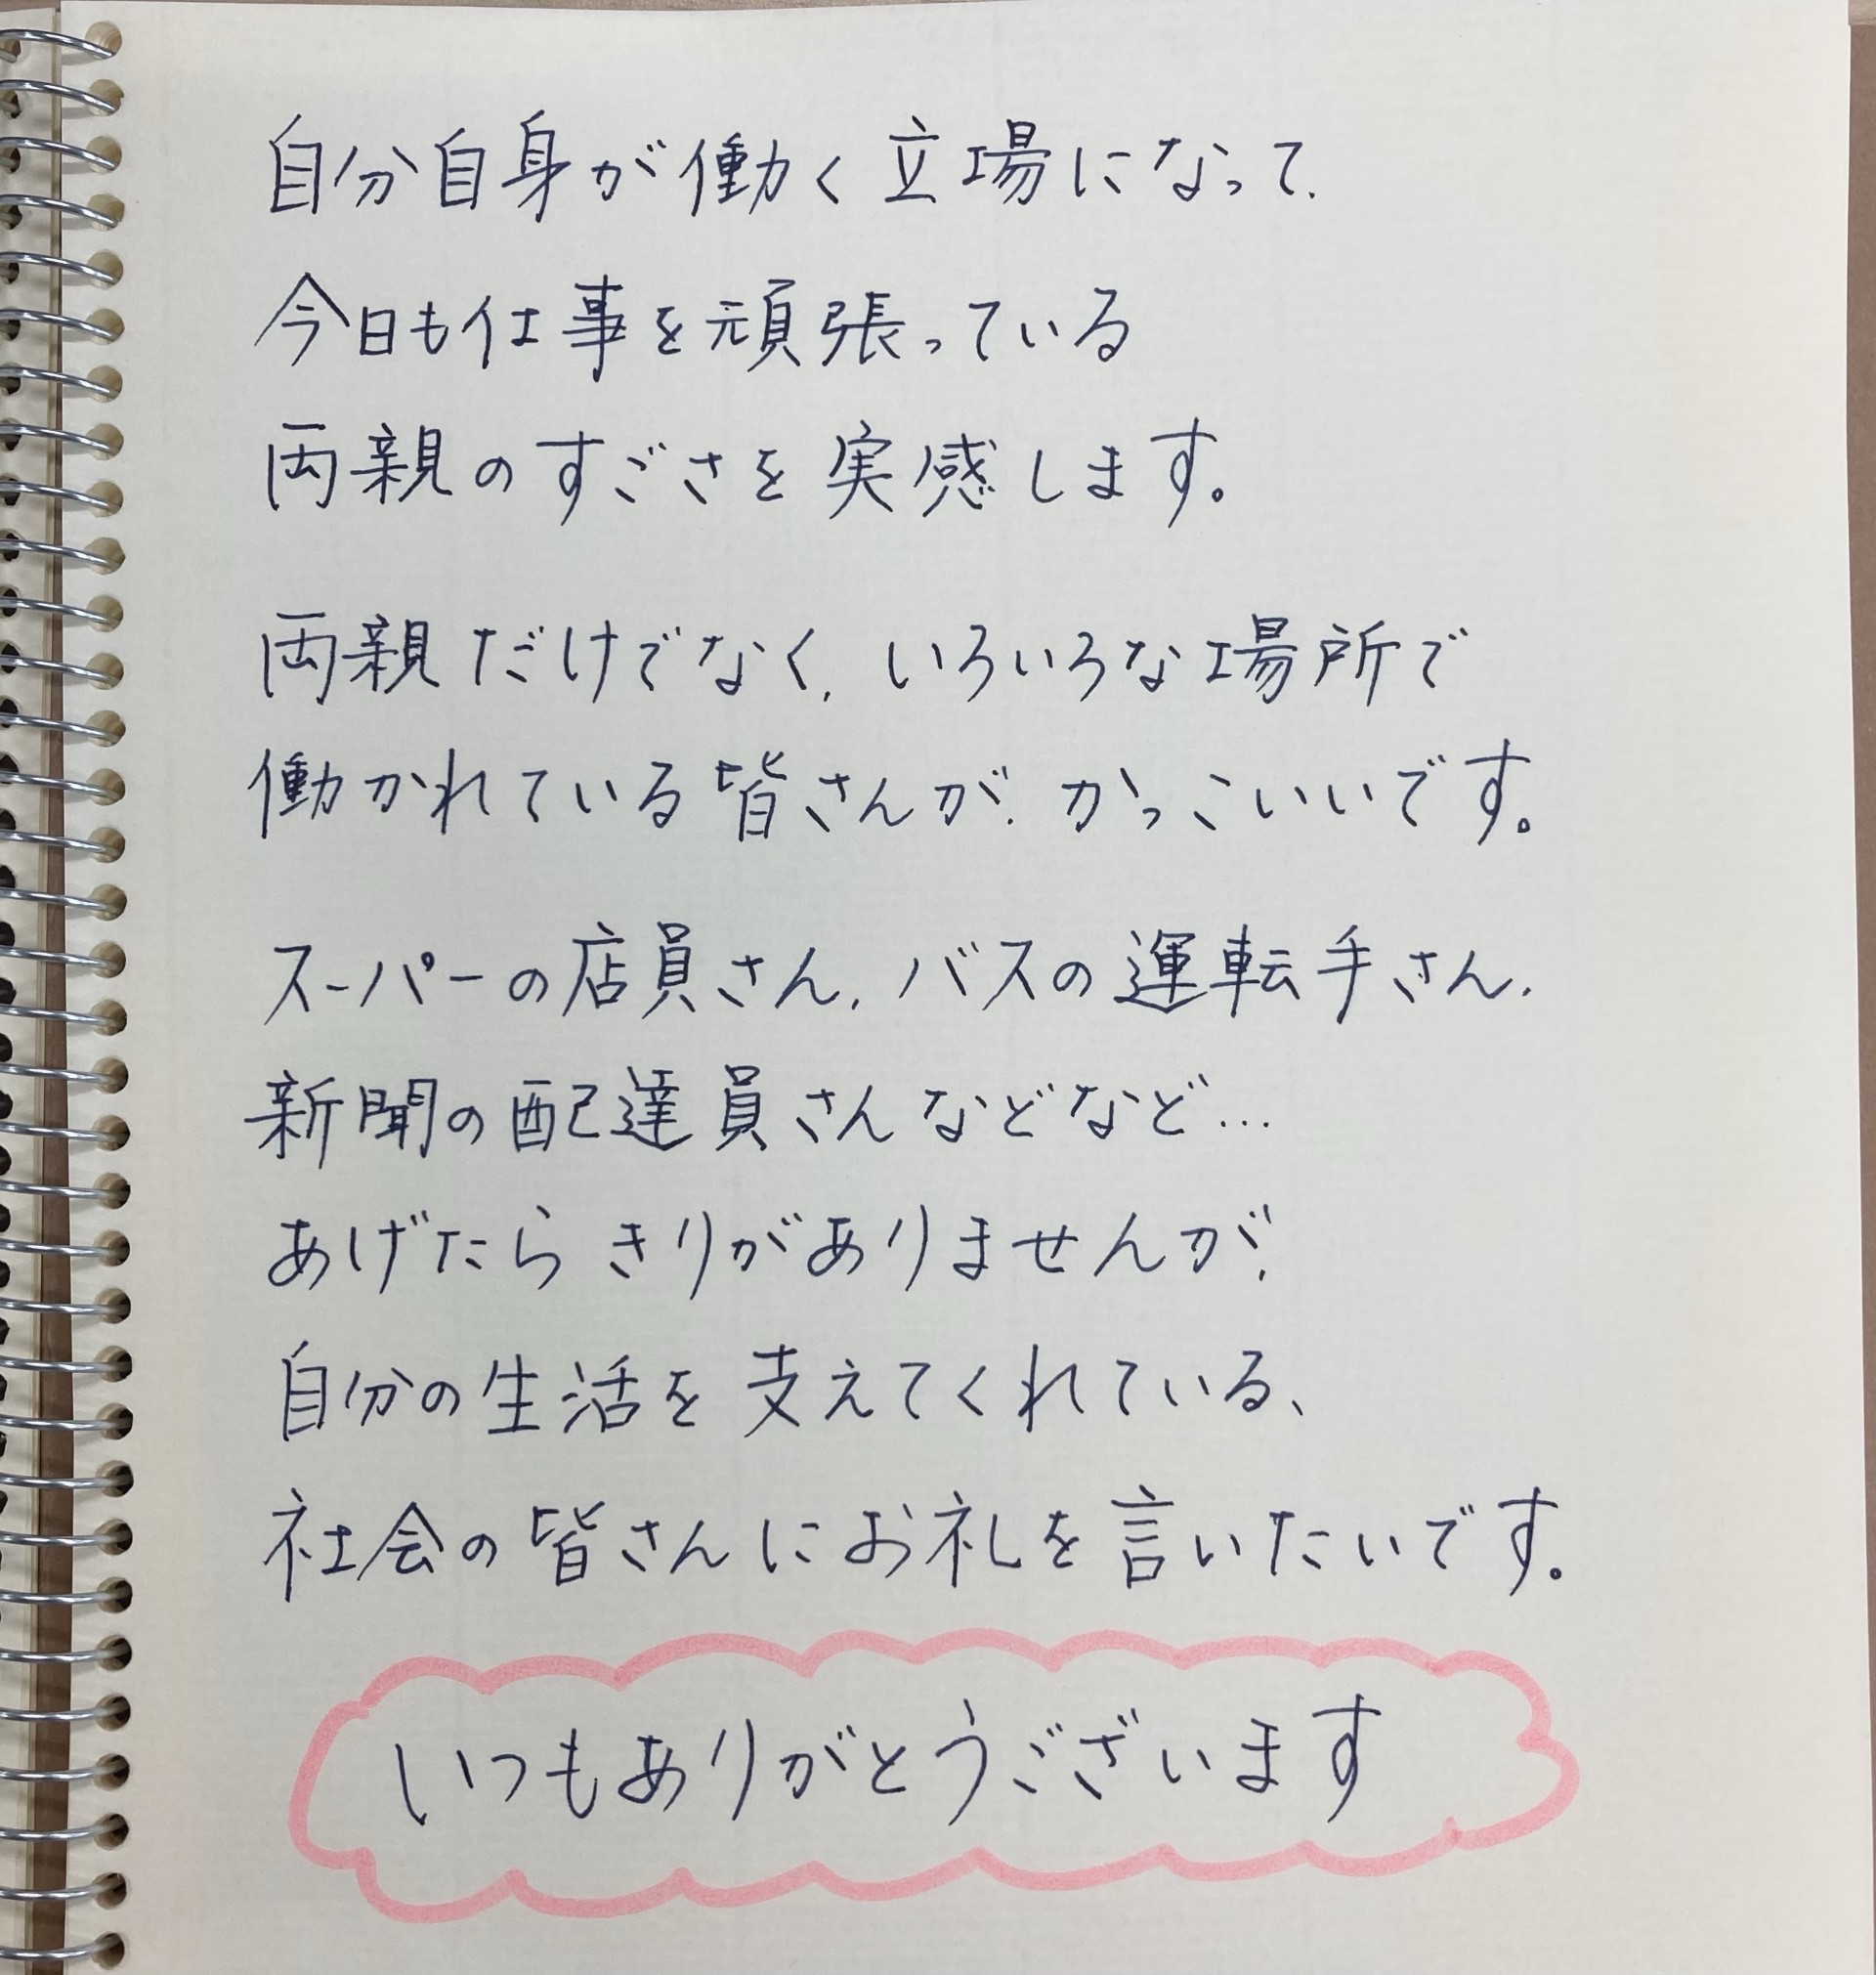 自分自身が働く立場になって、
今日も仕事を頑張っている
両親のすごさを実感します。
両親だけでなく、いろいろな場所で
働かれている皆さんが、かっこいいです。
スーパーの店員さん、バスの運転手さん、
新聞の配達員さんなどなど…
あげたらきりがありませんが、
自分の生活を支えてくれている、
社会の皆さんにお礼を言いたいです。
いつもありがとうございます